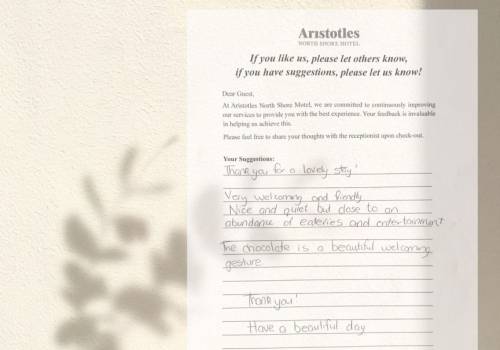 Aristotles
NORTH SHORE MOTEL
If you like us, please let others know,
if you have suggestions, please let us know!
Dear Guest,
At Aristotles North Shore Motel, we are committed to continuously improving
our services to provide you with the best experience. Your feedback is invaluable
in helping us achieve this.
Please feel free to share your thoughts with the receptionist upon check-out.
Your Suggestions:
Thank you for a lovely stay!
Very welcoming and friendly
Nice and quiet but close to an
abundance of eateries and entertainment
The chocolate is a beautiful welcoming
gesture
Thank you!
Have a beautiful day